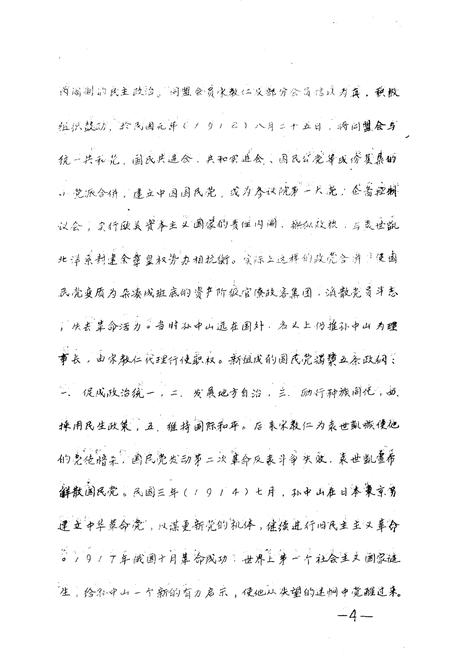 内阁制的民主政治。同盟会员宋教仁及部分会员信以为真，积极
组织鼓动，于民国元年（1912）八月二十五日，将同盟会与
统一共和党、国民共进会、共和实进会、国民公党等成份复杂的
小党派合併，建立中国国民党，成为参议院第一大党，企图控制
议会，实行欧美资本主义国家的责任内阁，掌政权，与袁世凯
北洋系封建余孽皇权势力相抗衡。实际上这样的政党合并，使国
民党变质为杂凑成班底的资产阶级官僚政客集团，涣散党员斗志
，失去革命活力。当时孙中山远在国外，名义上仍推孙中山为理
事长，由宋教仁代理行使职权。新组成的国民党揭橥五条政纲：
一、促成政治统一，二、发展地方自治，三、励行种族同化，四、
採用民生政策，五、维持国际和平。后来宋教仁为袁世凯贼使他
的党徒暗杀，国民党发动第二次革命反袁斗争失败，袁世凯宣布
解散国民党。民国三年（1914）七月，孙中山在日本东京另
建立中华革命党，以谋重新党的机体，继续进行旧民主主义革命
。1917年俄国十月革命成功，世界上第一个社会主义国家诞
生，给孙中山一个新的有力启示，使他从失望的迷惘中觉醒过来。
—4—